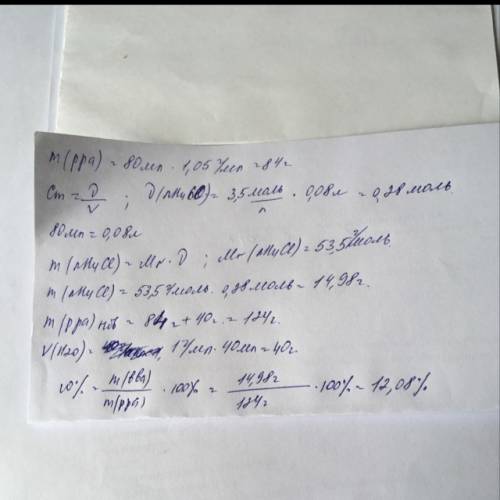 m(рра) = 80мл · 1,05 г/мл = 84г
Cm = ν/V ; ν(NH4Cl) = 3,5 моль/л · 0,08л = 0,28 моль.
80мл = 0,08л
m(NH4Cl) = Mr · ν ; Mr(NH4Cl) = 53,5 г/моль.
m(NH4Cl) = 53,5 г/моль · 0,28 моль = 14,98г.
m(рра) нов = 84г + 40г. = 124г.
V(H2O) = 1г/мл · 40мл = 40г.
ω% = m(вва)/m(рра) · 100% = 14,98г/124г · 100% = 12,08%